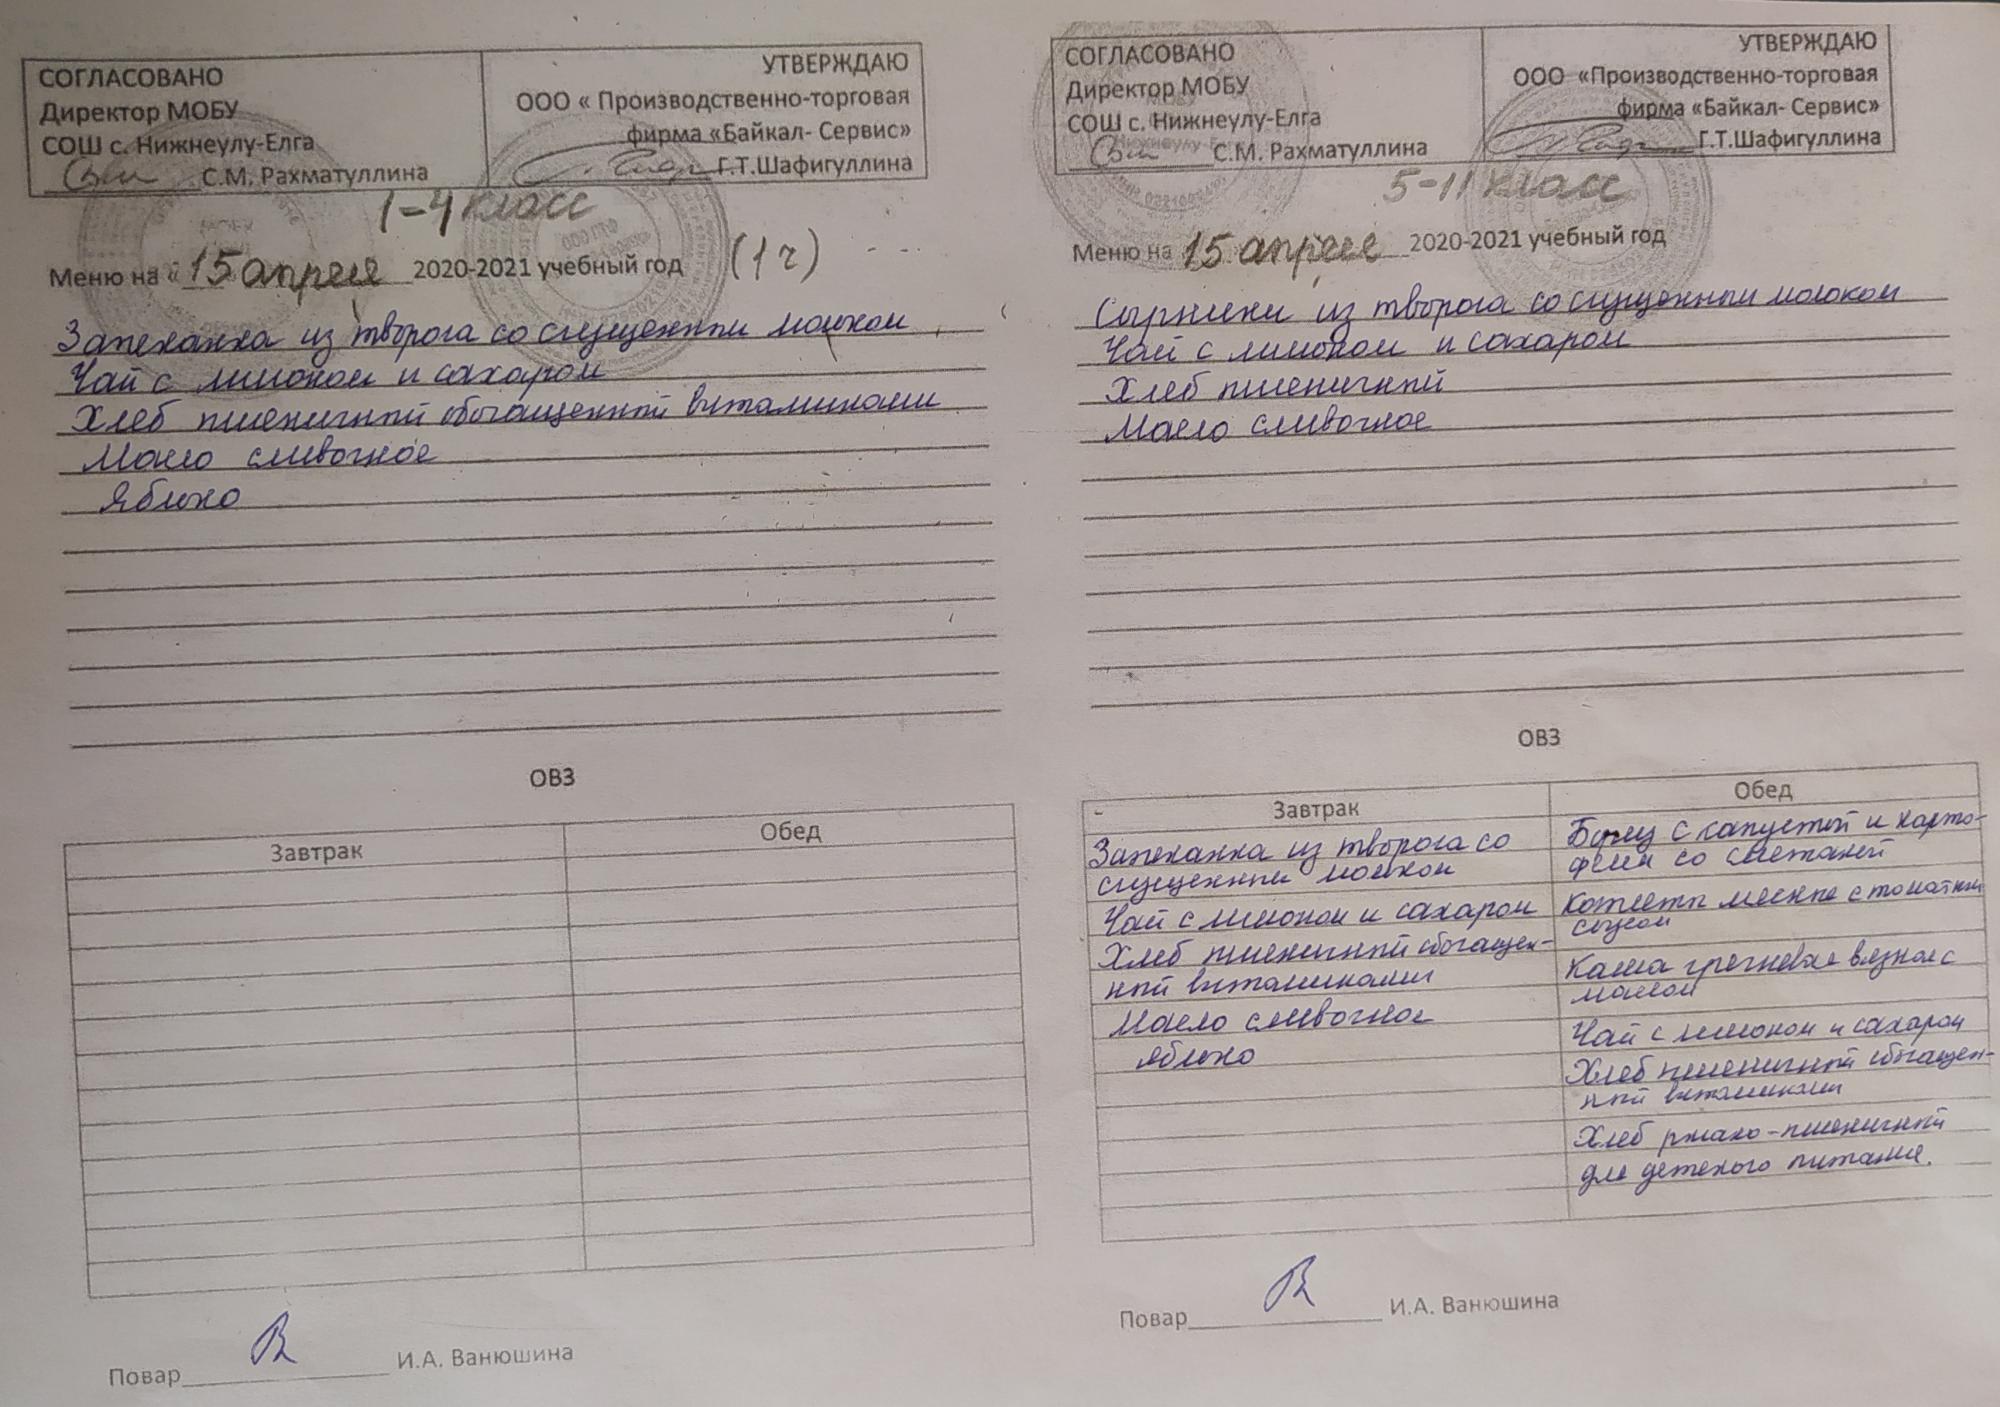 СОГЛАСОВАНО
Директор МОБУ
СОШ с. Нижнеулу-Елга
С.М. Рахматуллина
УТВЕРЖДАЮ
ООО « Производственно-торговая
фирма «Байкал- Сервис»
Г.Т.Шафигуллина
1-4 класс
Меню на « 15 апреля 2020-2021 учебный год (1 г)
Запеканка из творога со сгущенным молоком
Чай с лимоном и сахаром
Хлеб пшеничный обогащенный витаминами
Масло сливочное
Яблоко
ОВЗ
Завтрак
Обед
Повар И.А. Ванюшина
СОГЛАСОВАНО
Директор МОБУ
СОШ с. Нижнеулу-Елга
С.М. Рахматуллина
УТВЕРЖДАЮ
ООО «Производственно-торговая
фирма «Байкал- Сервис»
Г.Т.Шафигуллина
5-11 класс
Меню на 15 апреля 2020-2021 учебный год
Сырники из творога со сгущенным молоком
Чай с лимоном и сахаром
Хлеб пшеничный
Масло сливочное
ОВЗ
Завтрак
Запеканка из творога со
сгущенным молоком
Чай с лимоном и сахаром
Хлеб пшеничный обогащен-
ный витаминами
Масло сливочное
яблоко
Обед
Борщ с капустой и карто-
фелем со сметаной
Котлеты мясные с томатным
соусом
Каша гречневая вязкая с
маслом
Чай с лимоном и сахаром
Хлеб пшеничный обогащен-
ный витаминами
Хлеб ржано-пшеничный
для детского питания.
Повар И.А. Ванюшина